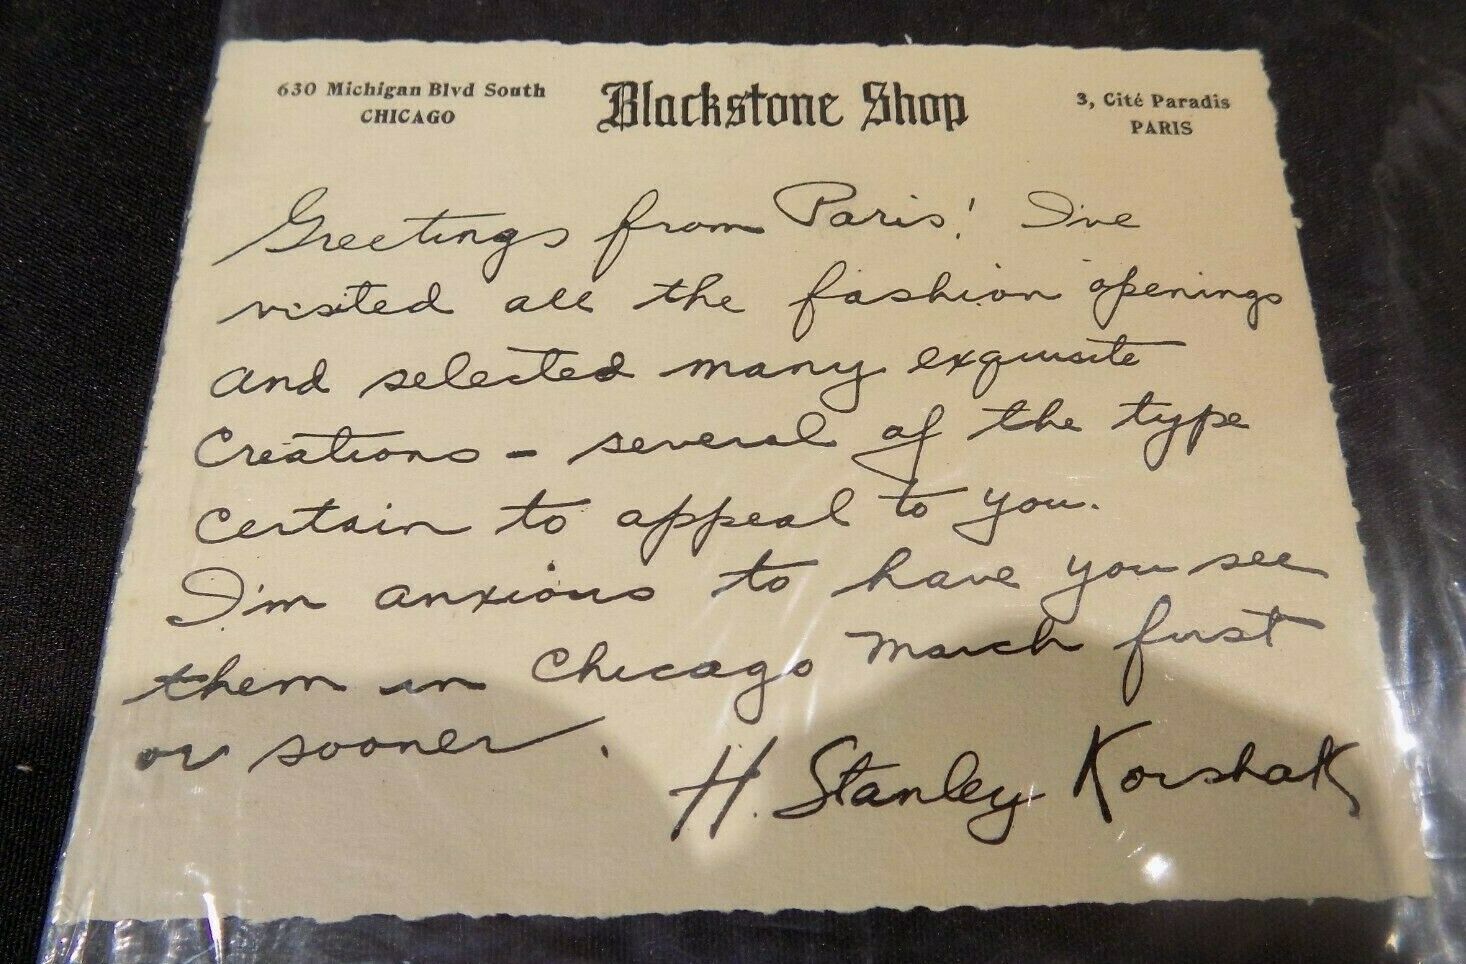 630 Michigan Blvd South
CHICAGO
Blackstone Shop
3, Cité Paradis
PARIS
Greetings from Paris! I've
visited all the fashion openings
and selected many exquisite
Creations - several of the type
certain to appeal to you.
I'm anxious to have you see
them in Chicago March first
or sooner.
H. Stanley Korshak